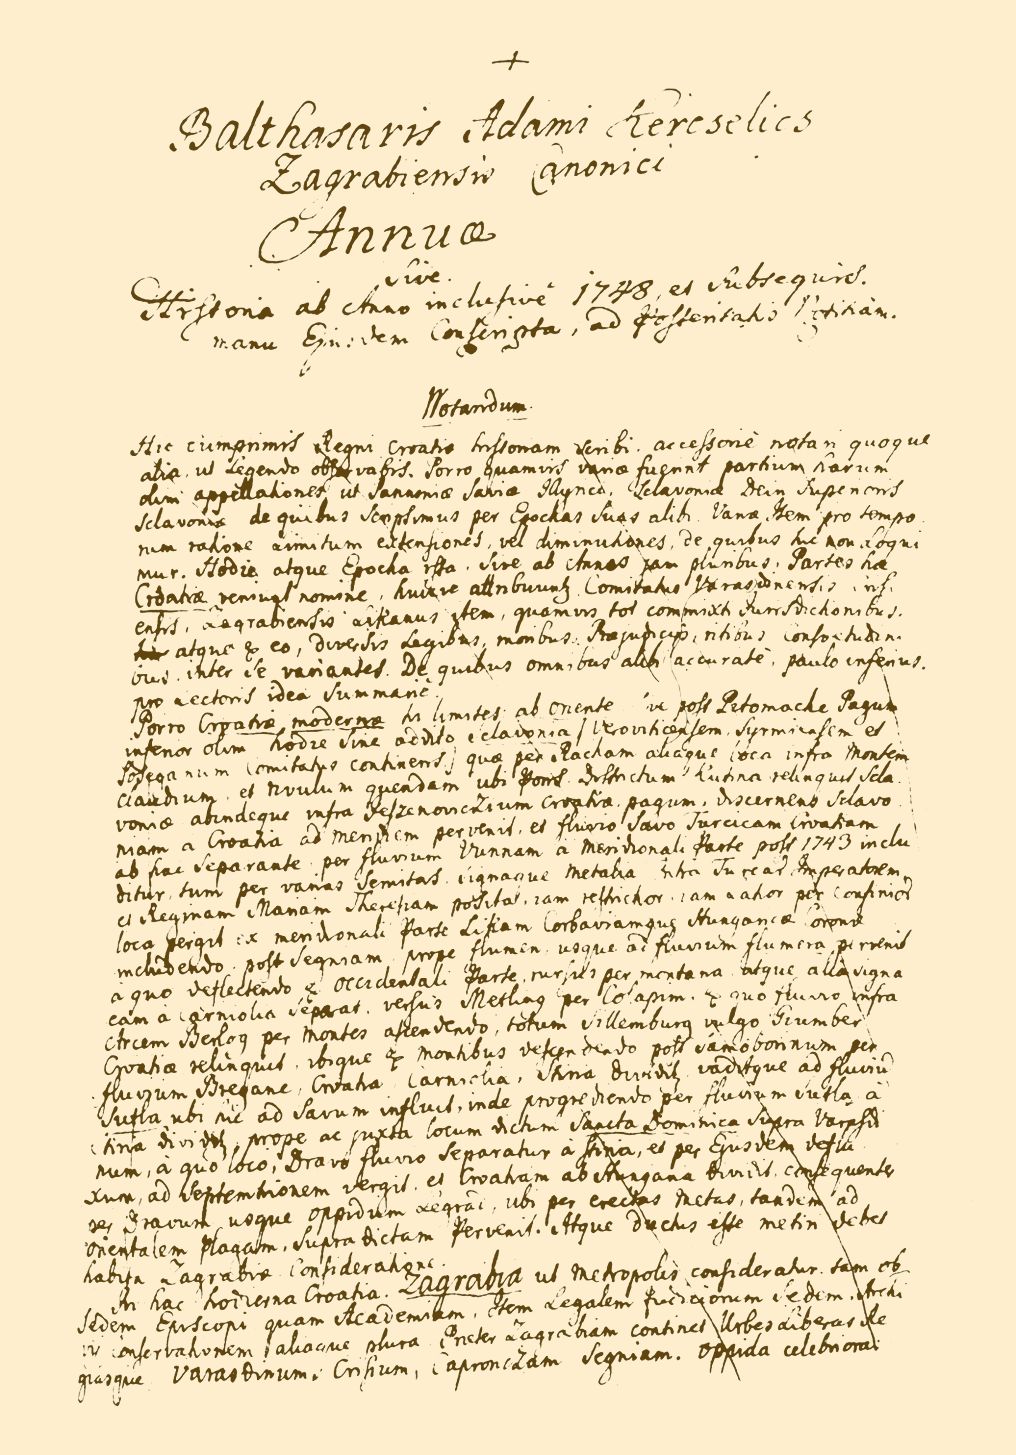 Balthasaris Adami Kercselics
Zagrabiensis Canonici
Annuæ
sive.
Historia ab Anno inclusivè 1748, et subsequis.
manu Ejusdem Conscripta, ad Posteritatis Notitiam.
Notandum.
Hic cumprimis Regni Croatiæ historiam scribi, accessoriè notari quoque
alia, ut legendo observabis. Porro quamvis variæ fuerint partium harum
olim appellationes ut Pannoniæ Saviæ Illyrici, Sclavoniæ Dein superioris
Sclavoniæ de quibus scripsimus per Epochas suas alibi. Variæ Item pro tempo
rum ratione limitum extensiones, vel diminutiones, de quibus hic non
mur. Hodie atque Epocha ista, sive ab Annos jam pluribus, Partes hæ
Croatiæ veniunt nomine, huicque attribuuntur Comitatus Varasdinensis,
ensis, Zagrabiensis item, quamvis tot commixti jurisdictionibus,
atque ex eo, diversis Legibus, moribus, Præjudiciis, ritibus Consvetudini
bus, inter se variantes. De quibus omnibus alibi accuratè, paulo inferius,
pro Lectoris idea summariè.
Porro Croatiæ modernæ hi limites, ab oriente post Petomache Pagum
inferior olim hodie sine addito Sclavonia / Veroviticensem, Syrmiensem et
Poseganum Comitatus continens / quæ per Racham aliaque loca infra Montem
Claudium, et rivulum quendam ubi Pons, Districtum Kutina relinquit Scla
voniæ abindeque infra Jessenoviczium Croatiæ pagum, discernens Sclavo
niam a Croatia ad meridiem pervenit, et fluvio Savo Turcicam Croatiam
ab hac separante, per fluvium Vunnam à Meridionali Parte post 1743 inclu
ditur, tum per varias semitas, signaque metalia intra Turcas Imperatorem
et Reginam Mariam Theresiam posita, jam restrictior, jam latior per Confinior
loca pergit ex meridionali Parte Likam Corbaviamque Hungaricæ Coronæ
includendo, post Segniam, prope flumen, usque ad fluvium flumera pervenit
à quo deflectendo ex occidentali Parte, rursus per montana, atque alia signa
eam à Carniolia separat, versus Metling per Colapim, ex quo fluvio infra
Arcem Berlog per Montes ascendendo, totum Sillemburg vulgo Xumber
Croatiæ relinquit, ibique ex montibus descendendo post Samoborinum per
fluvium Bregane, Croatia Carniolia, Stiria dividitur, vaditque ad fluvium
Sutla ubi hic ad Savum influit, inde progrediendo per fluvium Sutla à
Stiria dividitur, prope ac juxta locum dictum Sancta Dominica supra Varasdi
num, à quo loco, Dravo fluvio separatur à Stiria, et per Ejusdem deflu
xum, ad septemtrionem vergit, et Croatiam ab Hungaria dividit, consequenter
per Dravum usque oppidum Legrad, ubi per erectas Metas, tandem ad
orientalem plagam, supra dictam Pervenit. Atque ductus esse metiri debet
habita Zagrabiæ Consideratione.
In hac hodierna Croatia, Zagrabia ut Metropolis consideratur, tam ob
Sedem Episcopi quam Academiam, Item Legalem Judiciorum Sedem, Archi
vi Conservationem, aliaque plura. Præter Zagrabiam continet Urbes Liberas Re
giasque Varasdinum, Crisium, Capronczam Segniam. Oppida celebriora